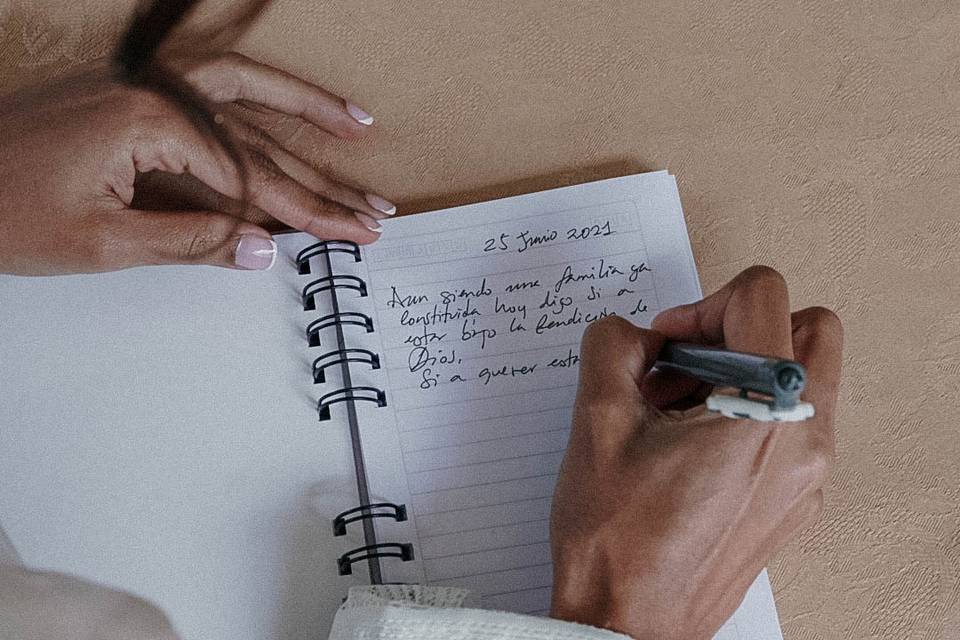 25 Junio 2021
Aun siendo una familia ya
constituida hoy digo si a
estar bajo la bendición de
Dios.
Si a querer esta